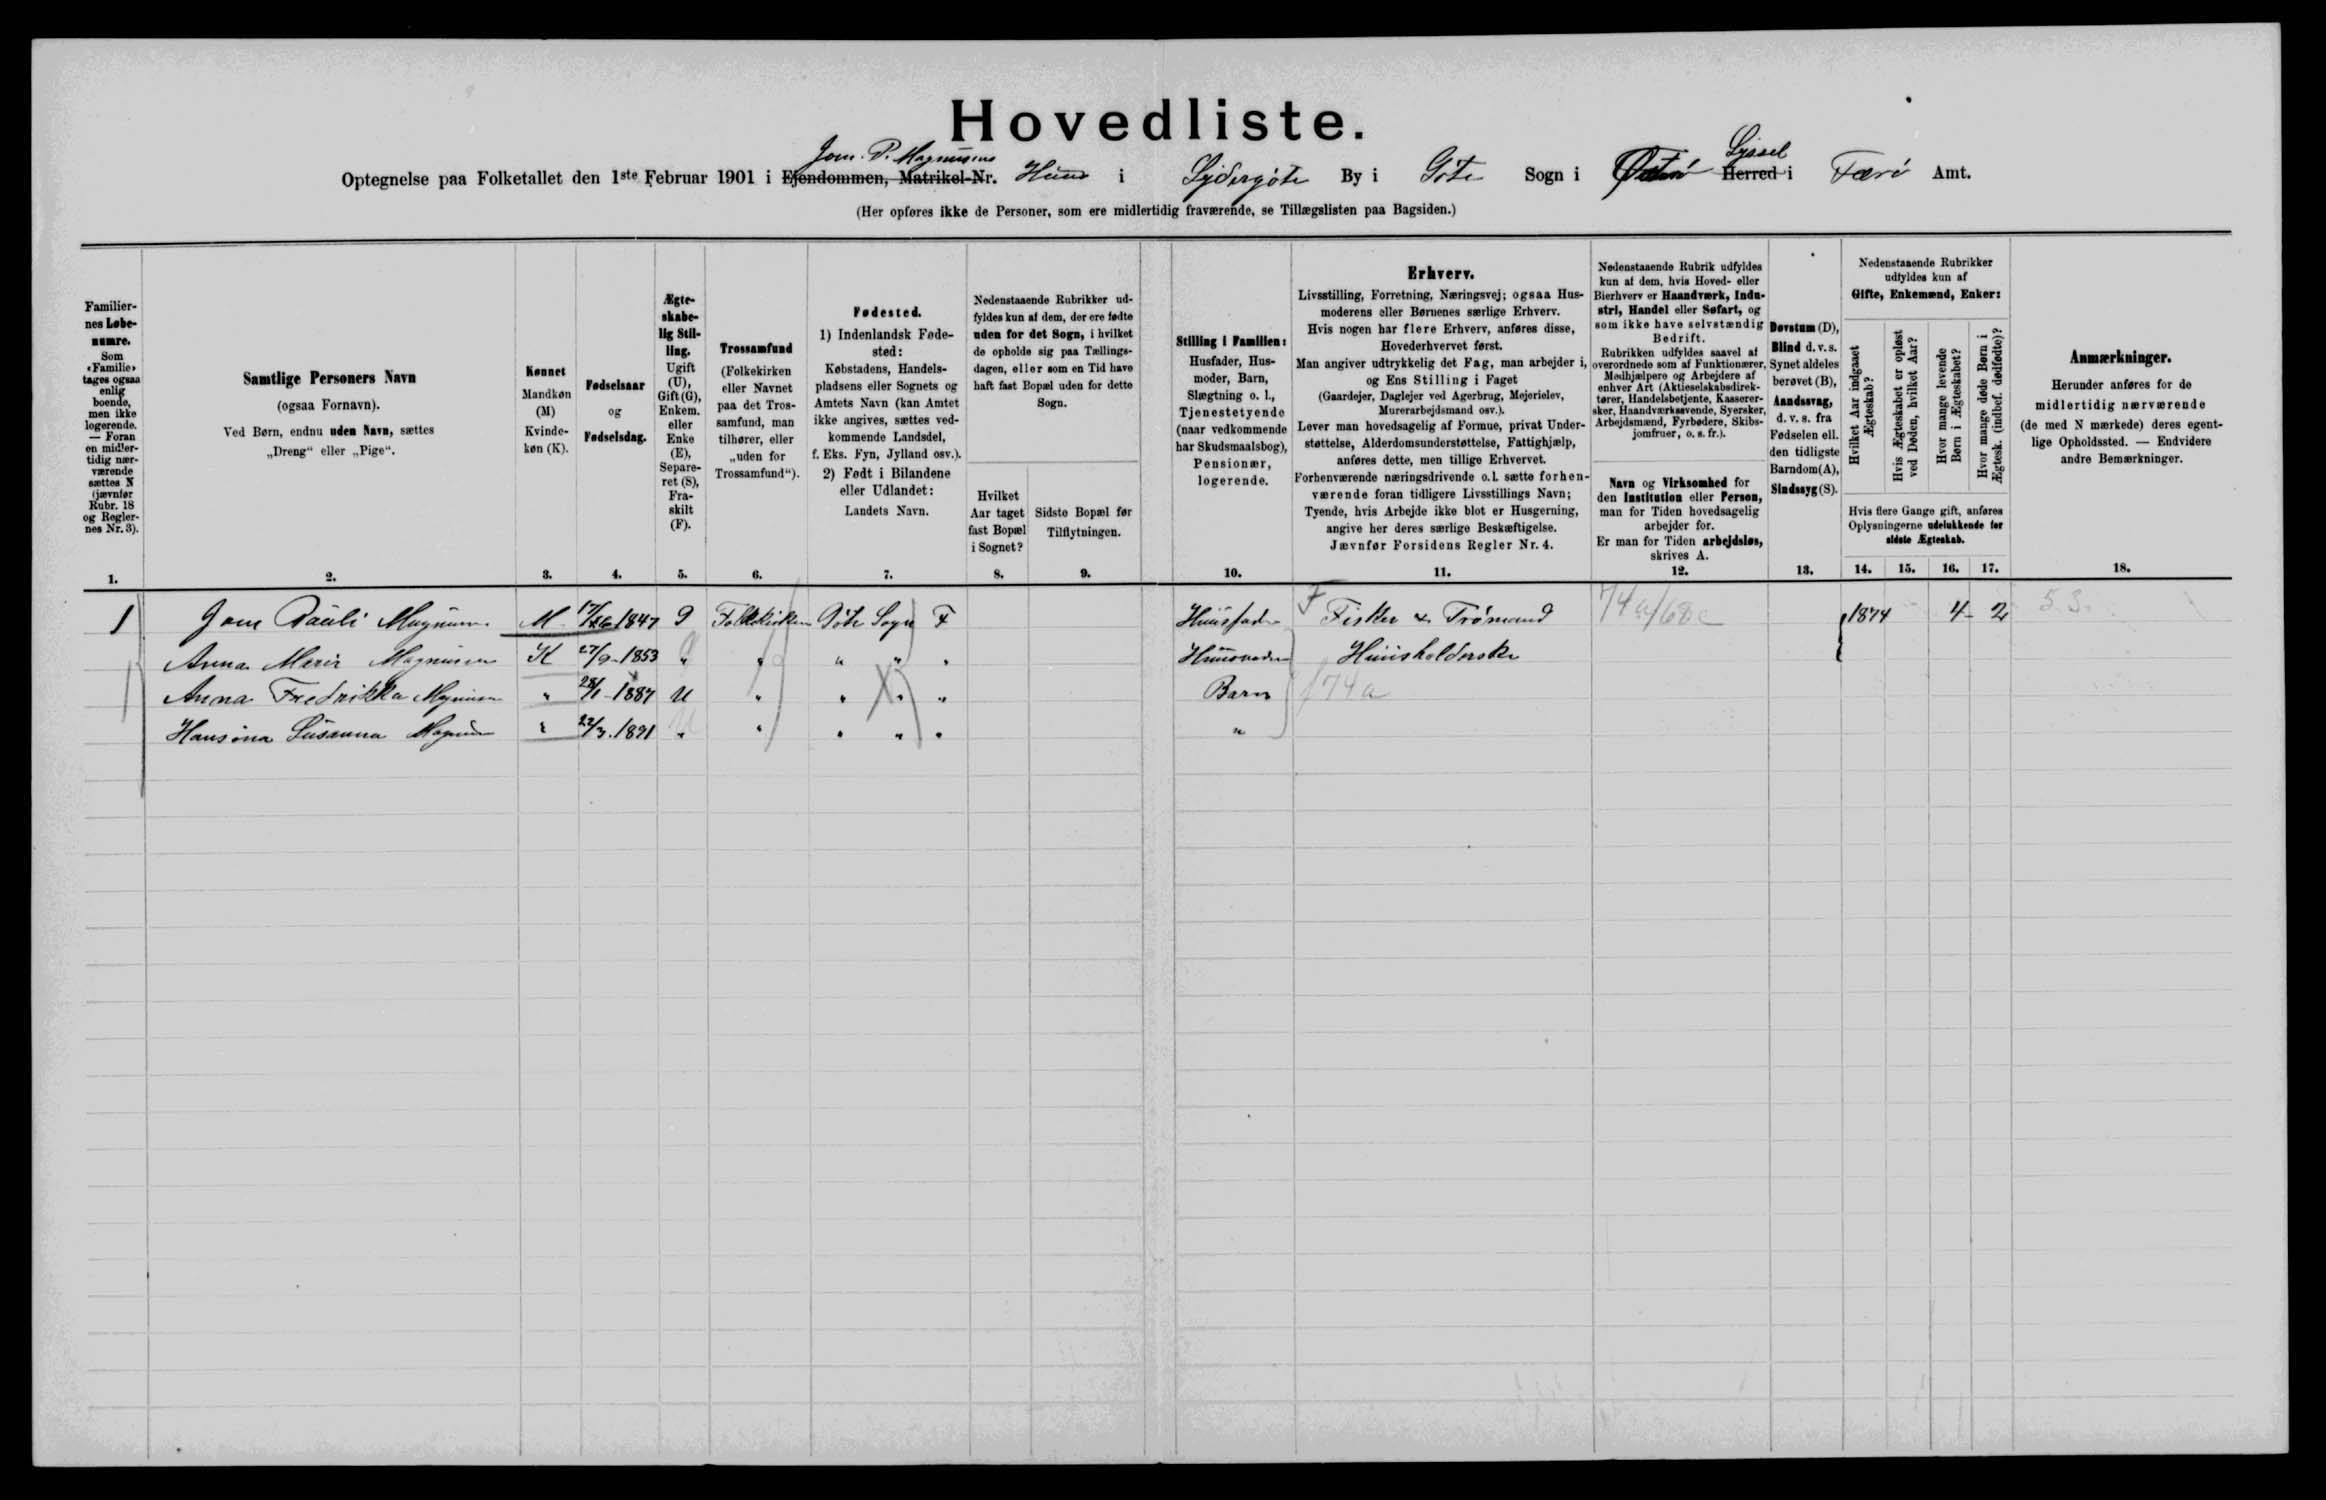 Hovedliste.
Jom. P. Magnusens
Optegnelse paa Folketallet den 1ste Februar 1901 i Ejendommen, Matrikel-Nr. Huus i Sydergöte By i Göte Sogn i Österö Herred i Færö Amt.
Syssel
(Her opføres ikke de Personer, som ere midlertidig fraværende, se Tillægslisten paa Bagsiden.)
Familiernes Løbenumre.
Som «Familie» tages ogsaa enlig boende, men ikke logerende. — Foran en midlertidig nærværende sættes N (jævnfør Rubr. 18 og Reglernes Nr. 3).
1.
Samtlige Personers Navn
(ogsaa Fornavn).
Ved Børn, endnu uden Navn, sættes
„Dreng“ eller „Pige“.
2.
Kønnet
Mandkøn (M)
Kvindekøn (K).
3.
Fødselsaar
og
Fødselsdag.
4.
Ægteskabelig Stilling.
Ugift (U), Gift (G), Enkem. eller Enke (E), Separeret (S), Fraskilt (F).
5.
Trossamfund
(Folkekirken eller Navnet paa det Trossamfund, man tilhører, eller „uden for Trossamfund“).
6.
Fødested.
1) Indenlandsk Fødested:
Købstadens, Handelspladsens eller Sognets og Amtets Navn (kan Amtet ikke angives, sættes vedkommende Landsdel, f. Eks. Fyn, Jylland osv.).
2) Født i Bilandene eller Udlandet:
Landets Navn.
7.
Nedenstaaende Rubrikker udfyldes kun af dem, der ere fødte uden for det Sogn, i hvilket de opholde sig paa Tællingsdagen, eller som en Tid have haft fast Bopæl uden for dette Sogn.
Hvilket Aar taget fast Bopæl i Sognet?
8.
Sidste Bopæl før Tilflytningen.
9.
Stilling i Familien:
Husfader, Husmoder, Barn, Slægtning o. l., Tjenestetyende (naar vedkommende har Skudsmaalsbog), Pensionær, logerende.
10.
Erhverv.
Livsstilling, Forretning, Næringsvej; ogsaa Husmoderens eller Børnenes særlige Erhverv.
Hvis nogen har flere Erhverv, anføres disse, Hovederhvervet først.
Man angiver udtrykkelig det Fag, man arbejder i, og Ens Stilling i Faget
(Gaardejer, Daglejer ved Agerbrug, Mejerielev, Murerarbejdsmand osv.).
Lever man hovedsagelig af Formue, privat Understøttelse, Alderdomsunderstøttelse, Fattighjælp, anføres dette, men tillige Erhvervet.
Forhenværende næringsdrivende o. l. sætte forhenværende foran tidligere Livsstillings Navn;
Tyende, hvis Arbejde ikke blot er Husgerning, angive her deres særlige Beskæftigelse.
Jævnfør Forsidens Regler Nr. 4.
11.
Nedenstaaende Rubrik udfyldes kun af dem, hvis Hoved- eller Bierhverv er Haandværk, Industri, Handel eller Søfart, og som ikke have selvstændig Bedrift.
Rubrikken udfyldes saavel af overordnede som af Funktionærer, Medhjælpere og Arbejdere af enhver Art (Aktieselskabsdirektører, Handelsbetjente, Kasserersker, Haandværkssvende, Syersker, Arbejdsmænd, Fyrbødere, Skibsjomfruer, o. s. fr.).
Navn og Virksomhed for den Institution eller Person, man for Tiden hovedsagelig arbejder for.
Er man for Tiden arbejdsløs, skrives A.
12.
Døvstum (D), Blind d. v. s. Synet aldeles berøvet (B), Aandssvag, d. v. s. fra Fødselen ell. den tidligste Barndom (A), Sindssyg (S).
13.
Nedenstaaende Rubrikker udfyldes kun af
Gifte, Enkemænd, Enker:
Hvilket Aar indgaaet Ægteskab?
Hvis Ægteskabet er opløst ved Døden, hvilket Aar?
Hvor mange levende Børn i Ægteskabet?
Hvor mange døde Børn i Ægtesk. (indbef. dødfødte)?
Hvis flere Gange gift, anføres Oplysningerne udelukkende for sidste Ægteskab.
14. 15. 16. 17.
Anmærkninger.
Herunder anføres for de midlertidig nærværende (de med N mærkede) deres egentlige Opholdssted. — Endvidere andre Bemærkninger.
18.
1 Jom Pauli Magnusen M 1847 G Folkekirken Göte Sogn F Huusfader F Fisker & Trömand 74a/68c 1874 4 - 2 53.
Anna Marie Magnusen K 27/9-1853 " " " " " Huusmoder Huusholderske
Anna Fredrikka Magnusen " 28/1-1887 U " " " " Barn 74a
Hansina Susanna Magnusen " 22/3.1891 " " " " " "